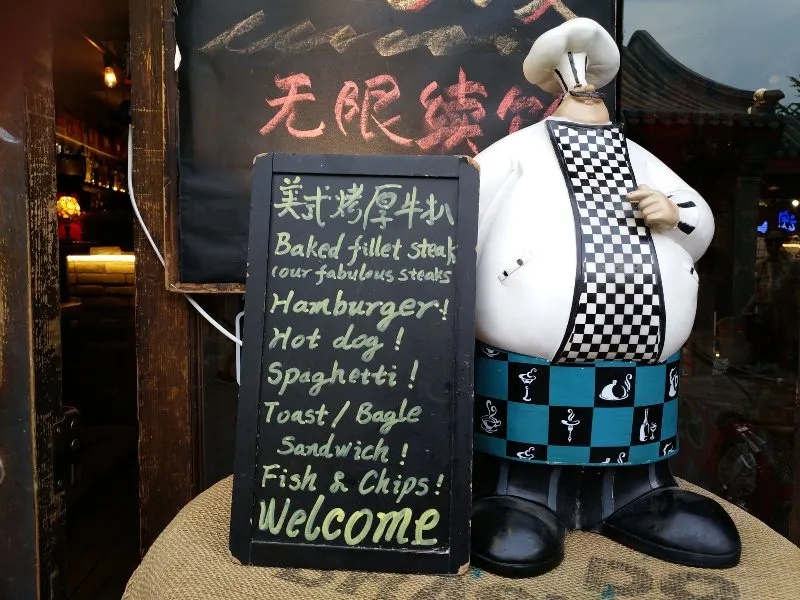 无限续饮
美式烤厚牛扒
Baked fillet steak
(our fabulous steaks
Hamburger!
Hot dog!
Spaghetti!
Toast/Bagle
Sandwich!
Fish & Chips!
Welcome